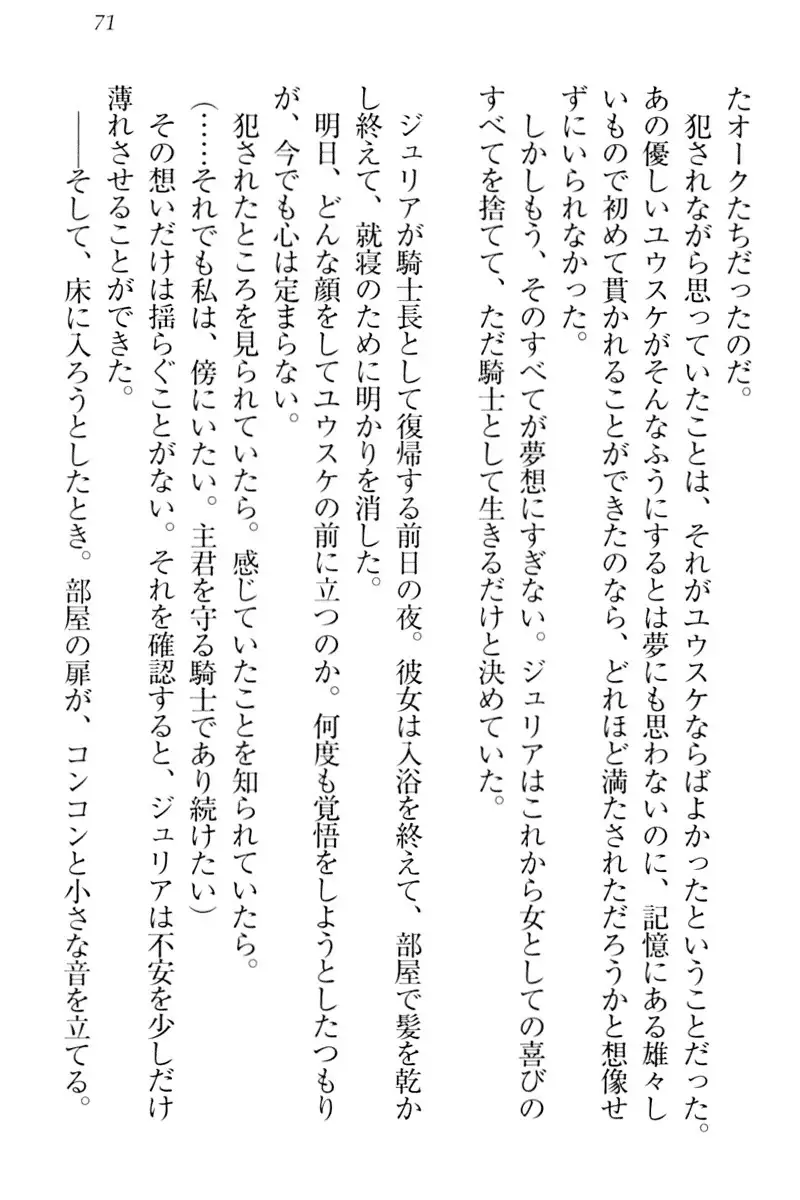 71
たオークたちだったのだ。
犯されながら思っていたことは、それがユウスケならばよかったということだった。
あの優しいユウスケがそんなふうにするとは夢にも思わないのに、記憶にある雄々し
いもので初めて貫かれることができたのなら、どれほど満たされただろうかと想像せ
ずにいられなかった。
しかしもう、そのすべてが夢想にすぎない。ジュリアはこれから女としての喜びの
すべてを捨てて、ただ騎士として生きるだけと決めていた。
ジュリアが騎士長として復帰する前日の夜。彼女は入浴を終えて、部屋で髪を乾か
し終えて、就寝のために明かりを消した。
明日、どんな顔をしてユウスケの前に立つのか。何度も覚悟をしようとしたつもり
が、今でも心は定まらない。
犯されたところを見られていたら。感じていたことを知られていたら。
(……それでも私は、傍にいたい。主君を守る騎士であり続けたい)
その想いだけは揺らぐことがない。それを確認すると、ジュリアは不安を少しだけ
薄れさせることができた。
――そして、床に入ろうとしたとき。部屋の扉が、コンコンと小さな音を立てる。